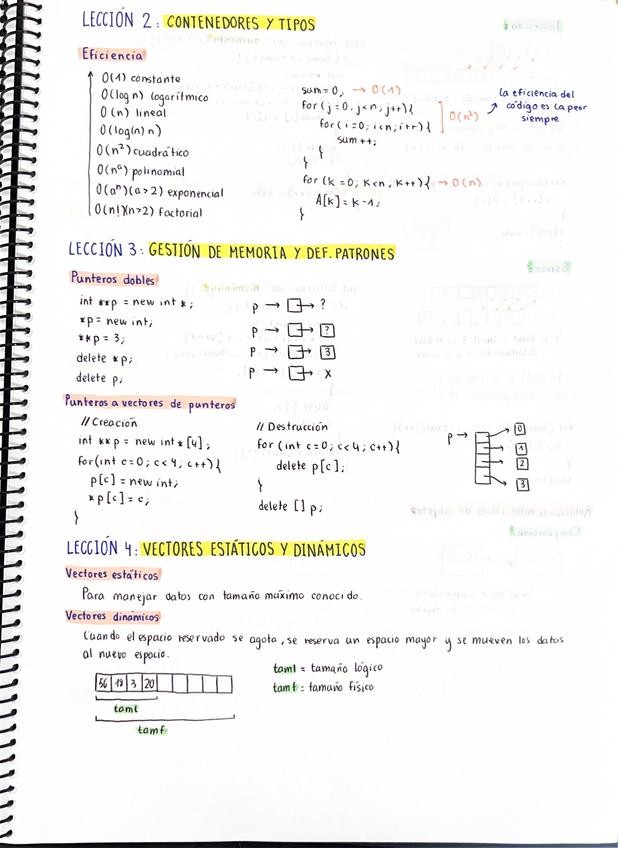 LECCIÓN 2: CONTENEDORES Y TIPOS
Eficiencia
O(1) constante
O(log n) logarítmico
O(n) lineal
O(log(n) n)
O(n²) cuadrático
O(nᵃ) polinomial
O(aⁿ)(a>2) exponencial
O(n!)(n>2) factorial
sum=0; → O(1)
for(j=0; j<n; j++){
for(i=0; i<n; i++){
sum++;
}
}
O(n²)
la eficiencia del
código es la peor
siempre
for(k=0; k<n, k++){ → O(n)
A[k]=k-1;
}
LECCIÓN 3: GESTIÓN DE MEMORIA Y DEF. PATRONES
Punteros dobles
int **p = new int *;
*p = new int;
**p = 3;
delete *p;
delete p;
p → → ?
p → → ?
p → → 3
p → → x
Punteros a vectores de punteros
//Creación
int **p = new int*[4];
for(int c=0; c<4; c++){
p[c] = new int;
*p[c] = c;
}
//Destrucción
for(int c=0; c<4; c++){
delete p[c];
}
delete [] p;
p →
0
1
2
3
LECCIÓN 4: VECTORES ESTÁTICOS Y DINÁMICOS
Vectores estáticos
Para manejar datos con tamaño máximo conocido.
Vectores dinámicos
Cuando el espacio reservado se agota, se reserva un espacio mayor y se mueven los datos
al nuevo espacio.
56 18 3 20
taml
tamf
taml = tamaño lógico
tamf = tamaño físico